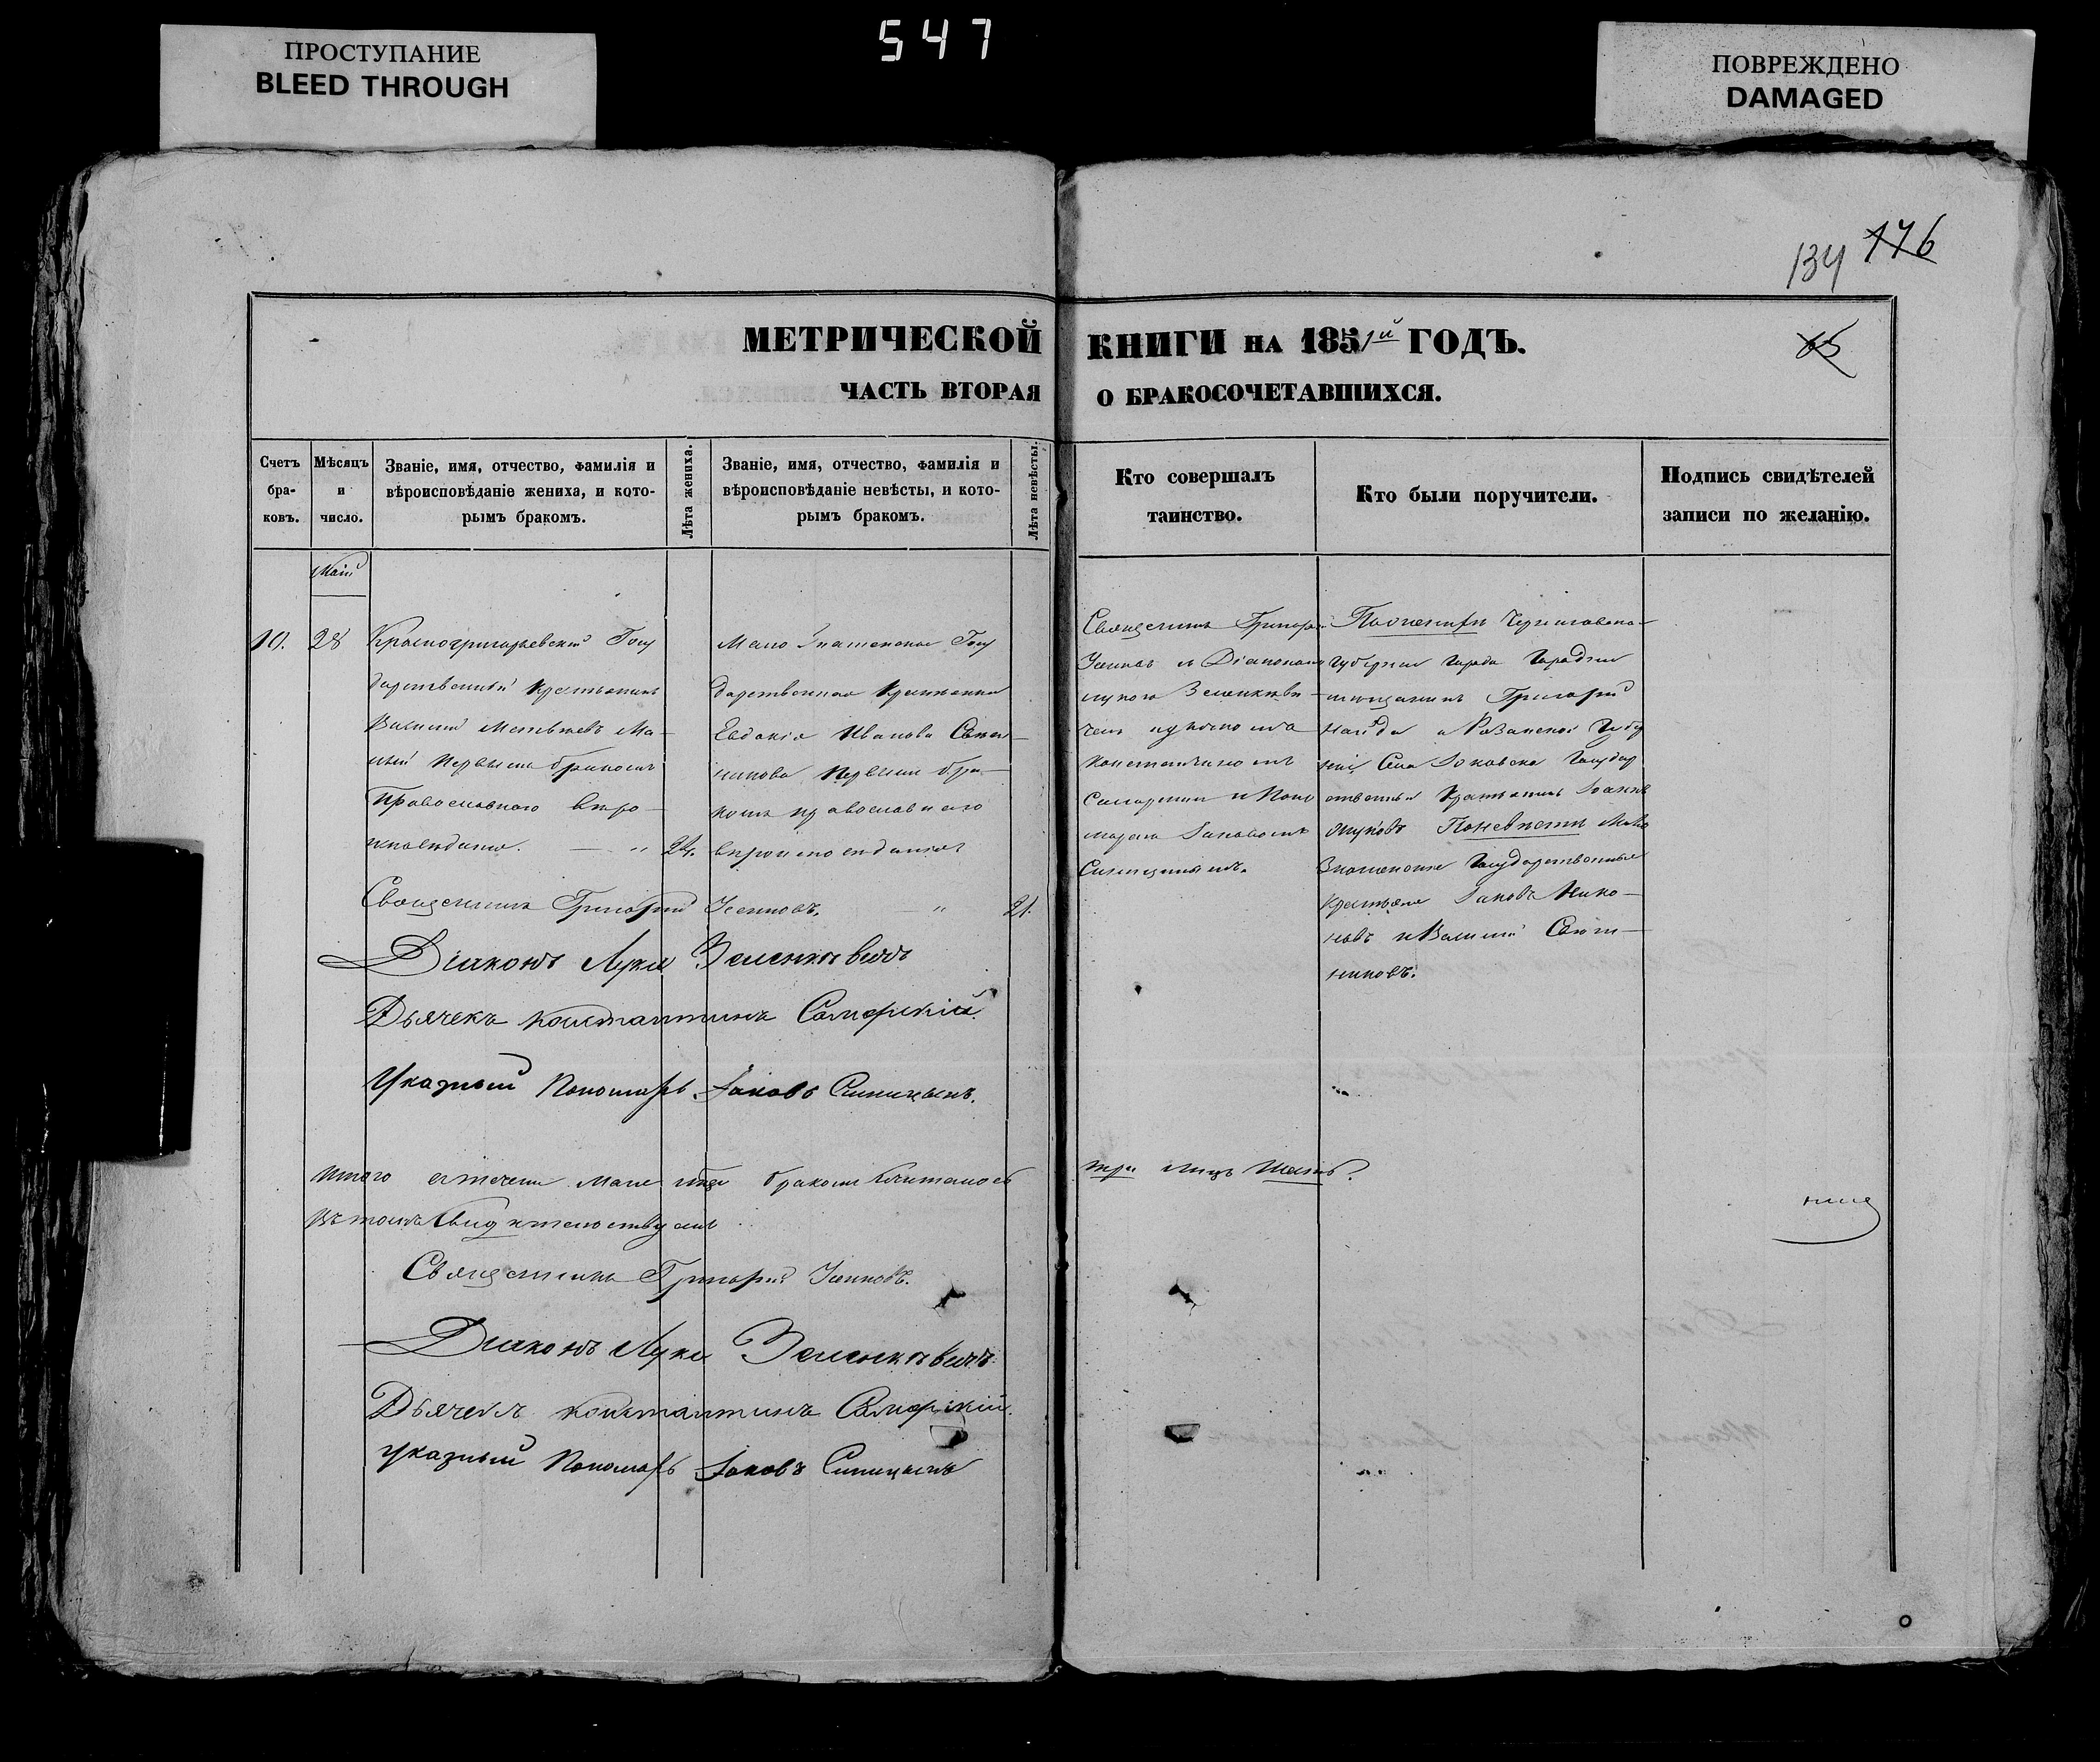 ПРОСТУПАНИЕ
BLEED THROUGH
547
ПОВРЕЖДЕНО
DAMAGED
134 176
МЕТРИЧЕСКОЙ КНИГИ НА 1851й ГОДЪ.
65
ЧАСТЬ ВТОРАЯ О БРАКОСОЧЕТАВШИХСЯ.
Счетъ
бра-
ковъ.
Мѣсяцъ
и
число.
Званіе, имя, отчество, фамилія и
вѣроисповѣданіе жениха, и кото-
рымъ бракомъ.
Лѣта жениха.
Званіе, имя, отчество, фамилія и
вѣроисповѣданіе невѣсты, и кото-
рымъ бракомъ.
Лѣта невѣсты.
Кто совершалъ
таинство.
Кто были поручители.
Подпись свидѣтелей
записи по желанію.
Маій
10.
28
Красногригорьевскій Госу
дарственный крестьянинъ
Василій Матвѣевъ Ма-
первымъ бракомъ
православнаго вѣро-
исповѣданія. — „ 24.
Мало Знаменская Госу
дарственная крестьянка
Евдокія Иванова
первымъ бра-
комъ православнаго
вѣроисповѣданія
— „ 21.
Священникъ Григорій
и Діакономъ
Лукою
Константиномъ
Самарскимъ и Поно
маремъ Іаковомъ
Синицынымъ.
По женихѣ Черниговской
губерніи города Городни
мѣщанинъ Григорій
и Рязанской Губер
ніи Села Государ
ственный крестьянинъ Іоаннъ
По невѣстѣ Мало
Знаменскіе Государственные
крестьяне Іаковъ Нико-
новъ и Василій
никовъ.
Священникъ Григорій
Діаконъ Лука
Дьячекъ Константинъ Самарскій.
Указный Пономарь Іаковъ Синицынъ.
Итого въ теченіи Маія мѣсяца бракомъ сочеталось три лицъ шесть.
Въ томъ свидѣтельствуемъ
Священникъ Григорій
Діаконъ Лука
Дьячекъ Константинъ Самарскій.
Указный Пономарь Іаковъ Синицынъ